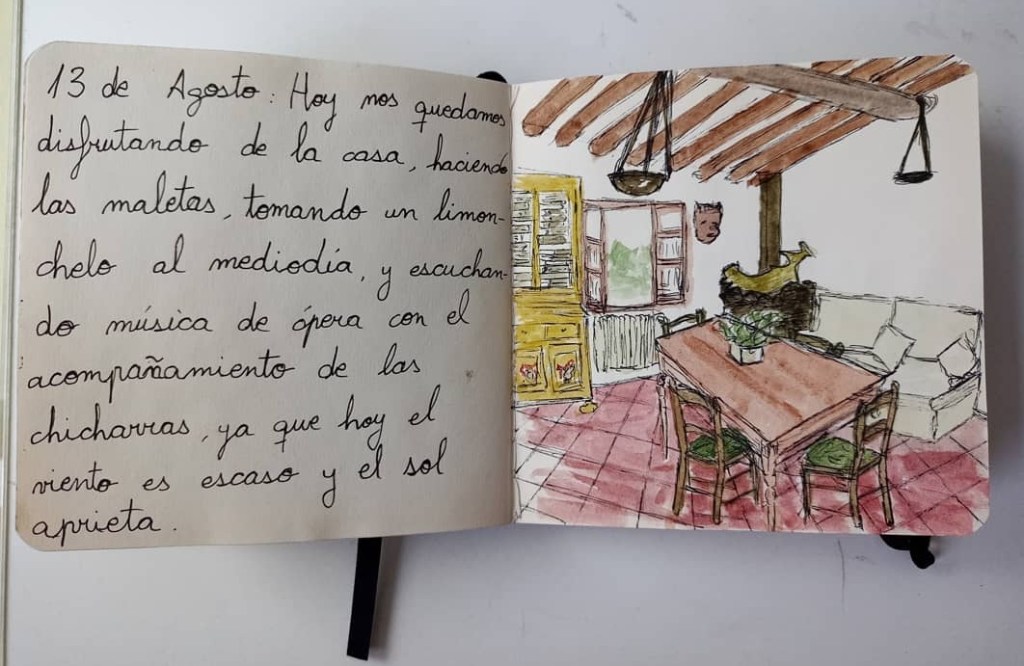 13 de Agosto: Hoy nos quedamos
disfrutando de la casa, haciendo
las maletas, tomando un limon-
chelo al mediodía, y escuchan-
do música de ópera con el
acompañamiento de las
chicharras, ya que hoy el
viento es escaso y el sol
aprieta.